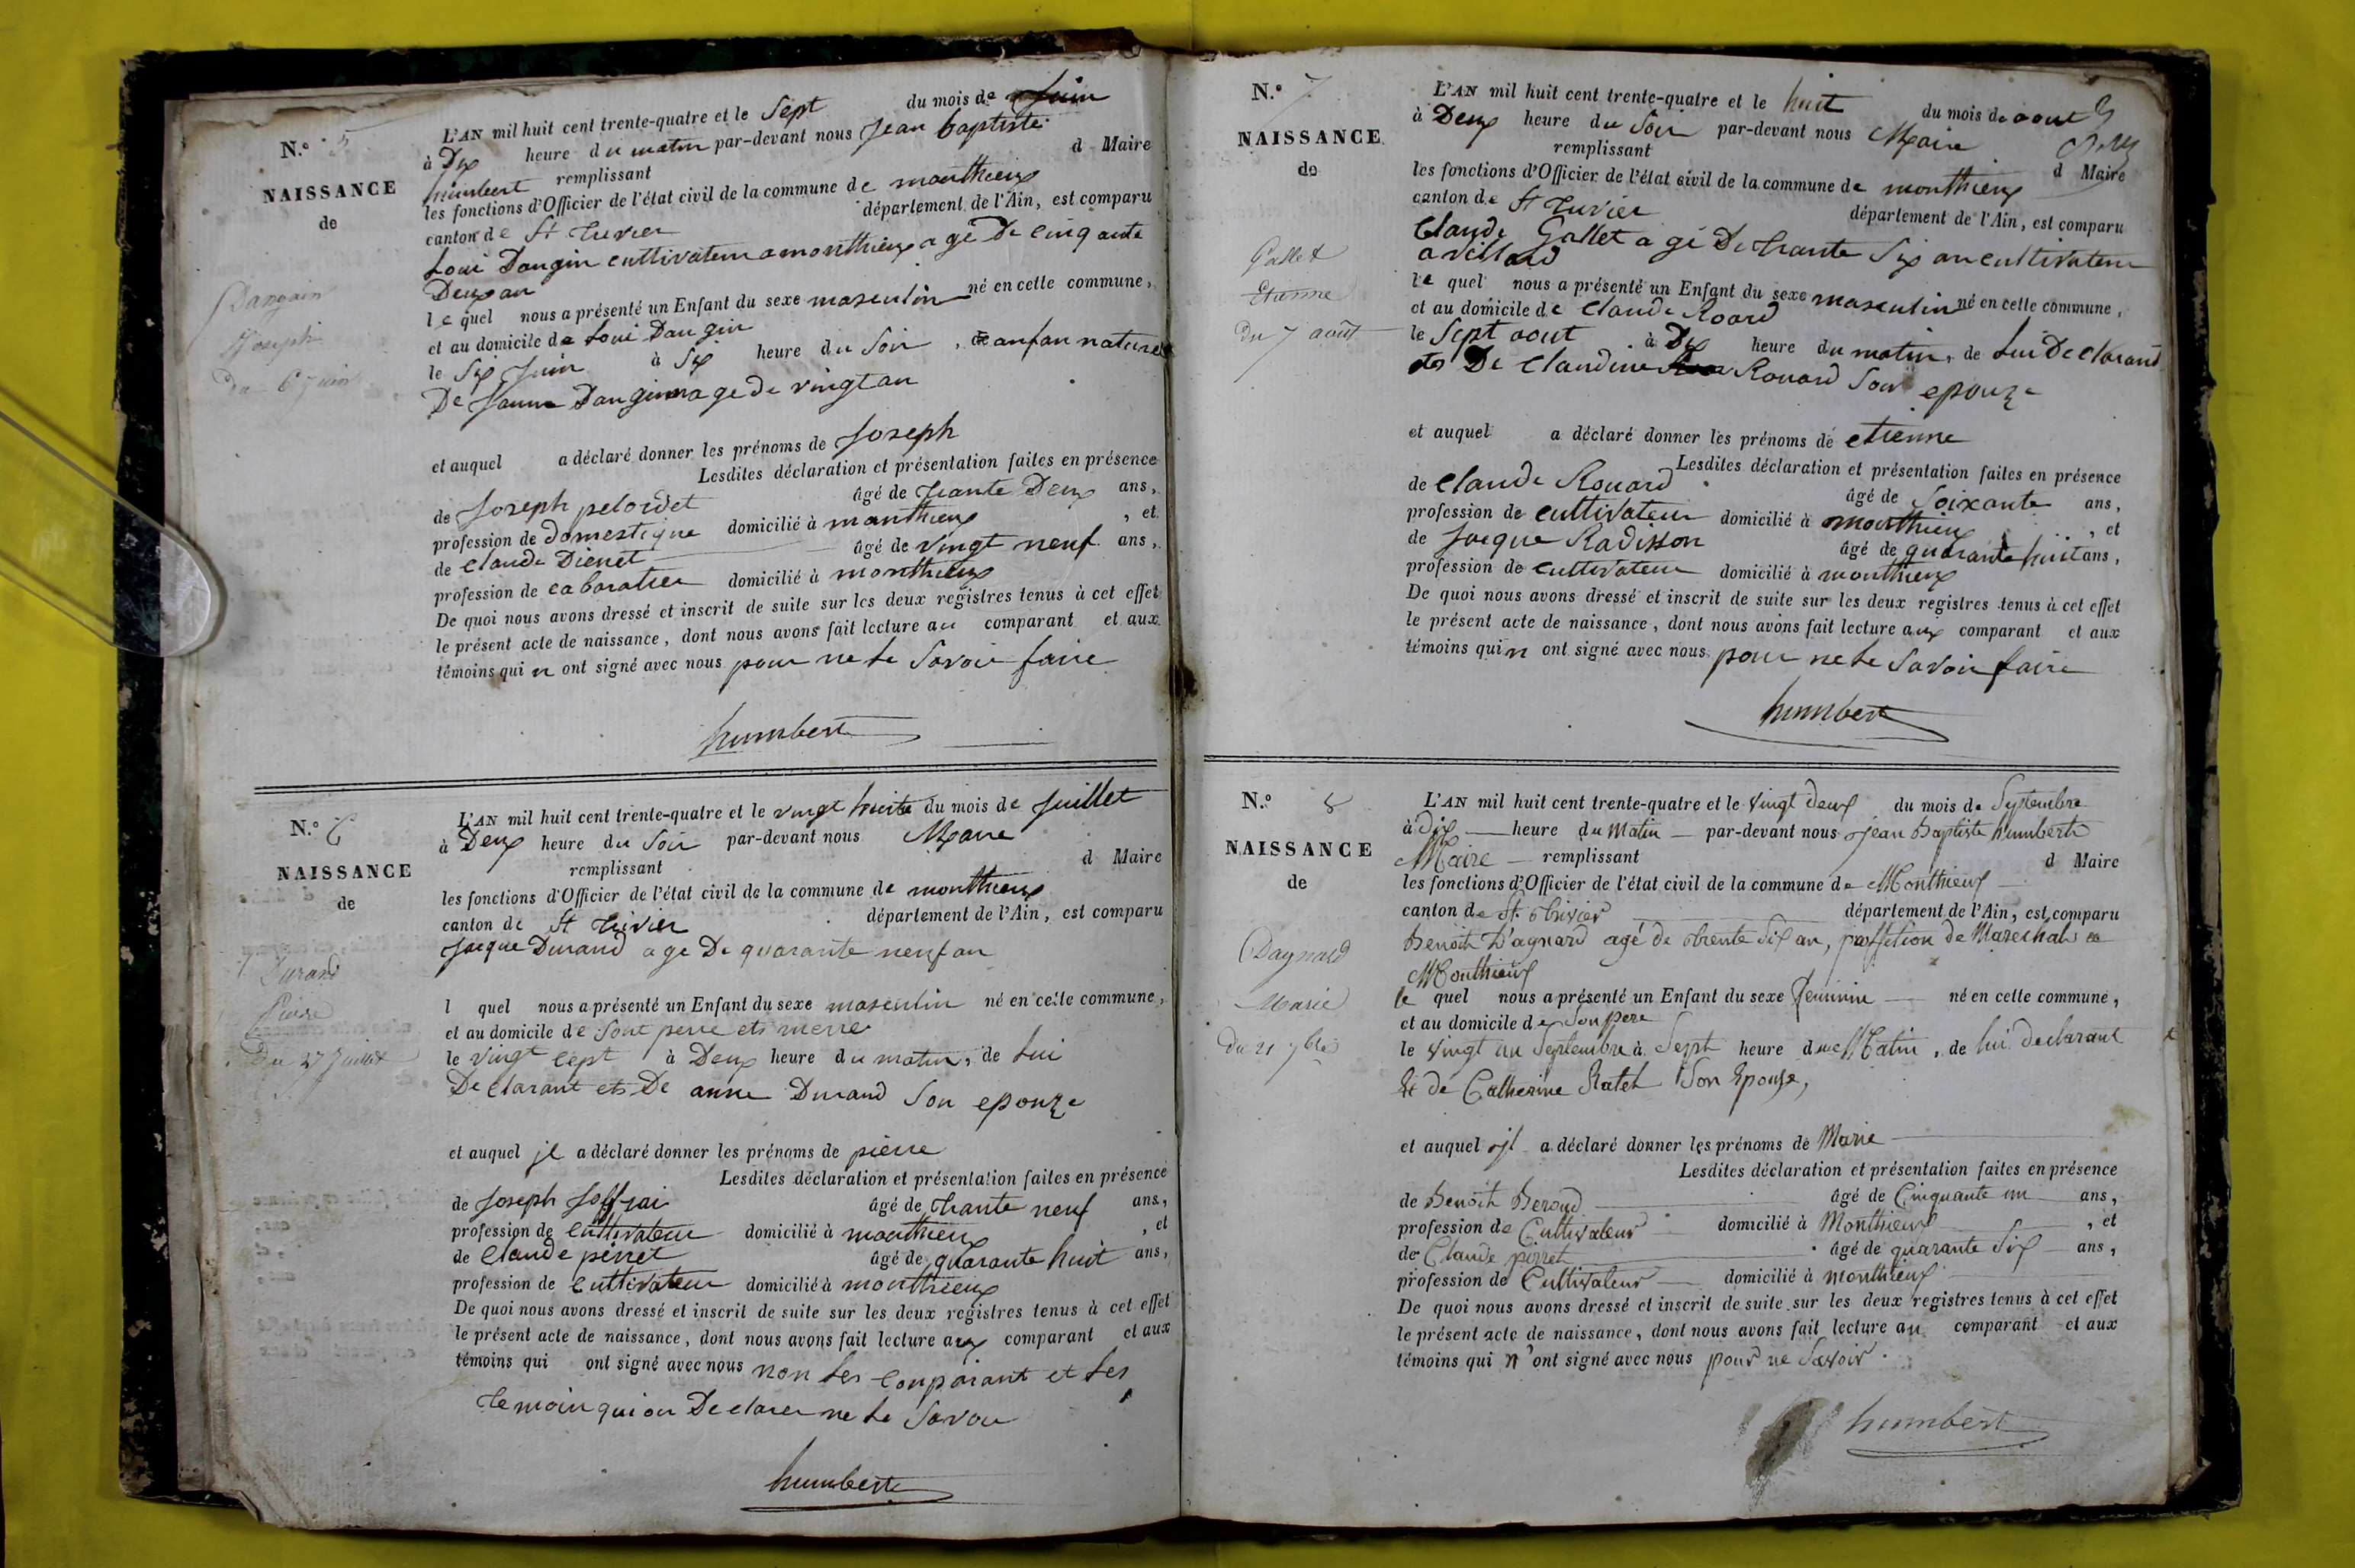 N.° 5
NAISSANCE
de
Dangain
Joseph
du 6 juin
L'AN mil huit cent trente-quatre et le Sept du mois de Juin
à Dix heure du matin par-devant nous Jean baptiste
humbert remplissant d Maire
les fonctions d'Officier de l'état civil de la commune de monthieux
canton de St trivier département de l'Ain, est comparu
Loui Dangin cultivateur a monthieux a gé De cinq ante
Deux an
le quel nous a présenté un Enfant du sexe masculin né en cette commune,
et au domicile de Loui Dangin
le Six Juin à Six heure du Soir, anfan naturel
De Janne Dangin age de vingt an
et auquel a déclaré donner les prénoms de Joseph
Lesdites déclaration et présentation faites en présence
de Joseph pelordet âgé de trante Deux ans,
profession de domestique domicilié à monthieux, et
de claude Dienet âgé de vingt neuf ans,
profession de cabaratier domicilié à monthieux
De quoi nous avons dressé et inscrit de suite sur les deux registres tenus à cet effet
le présent acte de naissance, dont nous avons fait lecture au comparant et aux
témoins qui n ont signé avec nous pour ne le Savoir faire
humbert
N.° 6
NAISSANCE
de
Durand
Pierre
Du 27 Juillet
L'AN mil huit cent trente-quatre et le vingt huite du mois de Juillet
à Deux heure du Soir par-devant nous Maire
remplissant d Maire
les fonctions d'Officier de l'état civil de la commune de monthieux
canton de St trivier département de l'Ain, est comparu
Jacque Durand a ge De quarante neuf an
l quel nous a présenté un Enfant du sexe masculin né en cette commune,
et au domicile de Sont perre et merre
le vingt cept à Deux heure du matin, de Lui
Declarant et De anne Durand Son epouze
et auquel jl a déclaré donner les prénoms de pierre
Lesdites déclaration et présentation faites en présence
de Joseph Joffrai âgé de trante neuf ans,
profession de cultivateur domicilié à monthieux, et
de claude perret âgé de quarante huit ans,
profession de cultivateur domicilié à monthieux
De quoi nous avons dressé et inscrit de suite sur les deux registres tenus à cet effet
le présent acte de naissance, dont nous avons fait lecture aux comparant et aux
témoins qui ont signé avec nous non les conparant et les
temoin qui on Declarer ne le Savoir
humbert
N.° 7
NAISSANCE
de
Gallet
Etienne
du 7 août
L'AN mil huit cent trente-quatre et le huit du mois de aout
à Deux heure du Soir par-devant nous Maire
remplissant d Maire
les fonctions d'Officier de l'état civil de la commune de monthieux
canton de St trivier département de l'Ain, est comparu
Claude Gallet a gé De trante Six an cultivateur
a villard
le quel nous a présenté un Enfant du sexe masculin né en cette commune,
et au domicile de claude Roard
le Sept aout à Dix heure du matin, de Lui Declarand
et De claudine Rouard Son epouze
et auquel a déclaré donner les prénoms de etienne
Lesdites déclaration et présentation faites en présence
de claude Rouard âgé de Soixante ans,
profession de cultivateur domicilié à monthieux, et
de Jacque Radisson âgé de quarante huit ans,
profession de cultivateur domicilié à monthieux
De quoi nous avons dressé et inscrit de suite sur les deux registres tenus à cet effet
le présent acte de naissance, dont nous avons fait lecture aux comparant et aux
témoins qui n ont signé avec nous pour ne le Savoir faire
humbert
N.° 8
NAISSANCE
de
Dagnard
Marie
du 21 7bre
L'AN mil huit cent trente-quatre et le vingt deux du mois de Septembre
à dix heure du Matin par-devant nous jean Baptiste humbert
Maire remplissant d Maire
les fonctions d'Officier de l'état civil de la commune de Monthieux
canton de St. trivier département de l'Ain, est comparu
Benoit Dagnard agé de trente Six an, proffetion de Marechal a
Monthieux
le quel nous a présenté un Enfant du sexe feminin né en cette commune,
et au domicile de Son pere
le vingt un Septembre à Sept heure du Matin, de lui declarant
Et de Catherine Ratet Son Epouse,
et auquel jl a déclaré donner les prénoms de Marie
Lesdites déclaration et présentation faites en présence
de Benoit Beroud âgé de Cinquante un ans,
profession de Cultivateur domicilié à Monthieux, et
de Claude perret âgé de quarante Six ans,
profession de Cultivateur domicilié à monthieux
De quoi nous avons dressé et inscrit de suite sur les deux registres tenus à cet effet
le présent acte de naissance, dont nous avons fait lecture au comparant et aux
témoins qui n'ont signé avec nous pour ne Savoir.
humbert